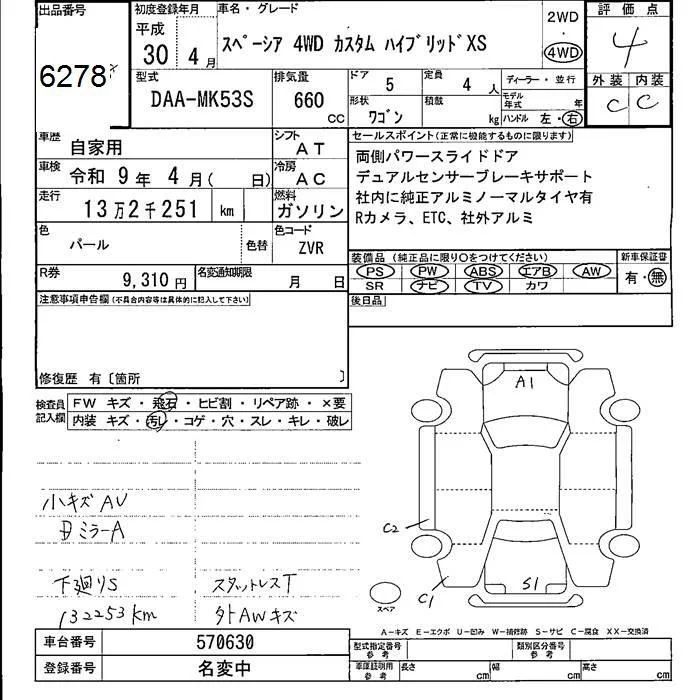 出品番号
6278
初度登録年月
平成
30 4 月
車名・グレード
スペーシア 4WD カスタム ハイブリッドXS
2WD
・
4WD
評価点
4
外装 内装
C C
型式
DAA-MK53S
排気量
660
CC
ドア 5
定員 4 人
形状 ワゴン
積載 kg
ディーラー・並行
モデル年式 年
ハンドル 左・右
車歴
自家用
シフト
AT
車検
令和 9年 4月( 日)
冷房
AC
走行
13万2千251 km
燃料
ガソリン
色
パール
色替
色コード
ZVR
R券
9,310 円
名変通知期限
月 日
セールスポイント(正常に機能するものに限ります)
両側パワースライドドア
デュアルセンサーブレーキサポート
社内に純正アルミノーマルタイヤ有
Rカメラ、ETC、社外アルミ
装備品 (純正品に限り○をつけてください)
PS PW ABS エアB AW
SR ナビ TV カワ
新車保証書
有・無
後日品
注意事項申告欄(不具合内容等は具体的に記入して下さい)
修復歴 有〔箇所 〕
検査員
記入欄
FW キズ・飛石・ヒビ割・リペア跡・×要
内装 キズ・汚レ・コゲ・穴・スレ・キレ・破レ
小キズAU
ミラーA
下廻りS
スタットレスT
132253km
外AWキズ
A1
C2
C1
S1
スペア
A－キズ E－エクボ U－凹み W－補修跡 S－サビ C－腐食 XX－交換済
車台番号
570630
登録番号
名変中
型式指定番号
参考
類別区分番号
参考
車庫証明用
参考
長さ cm
幅 cm
高さ cm